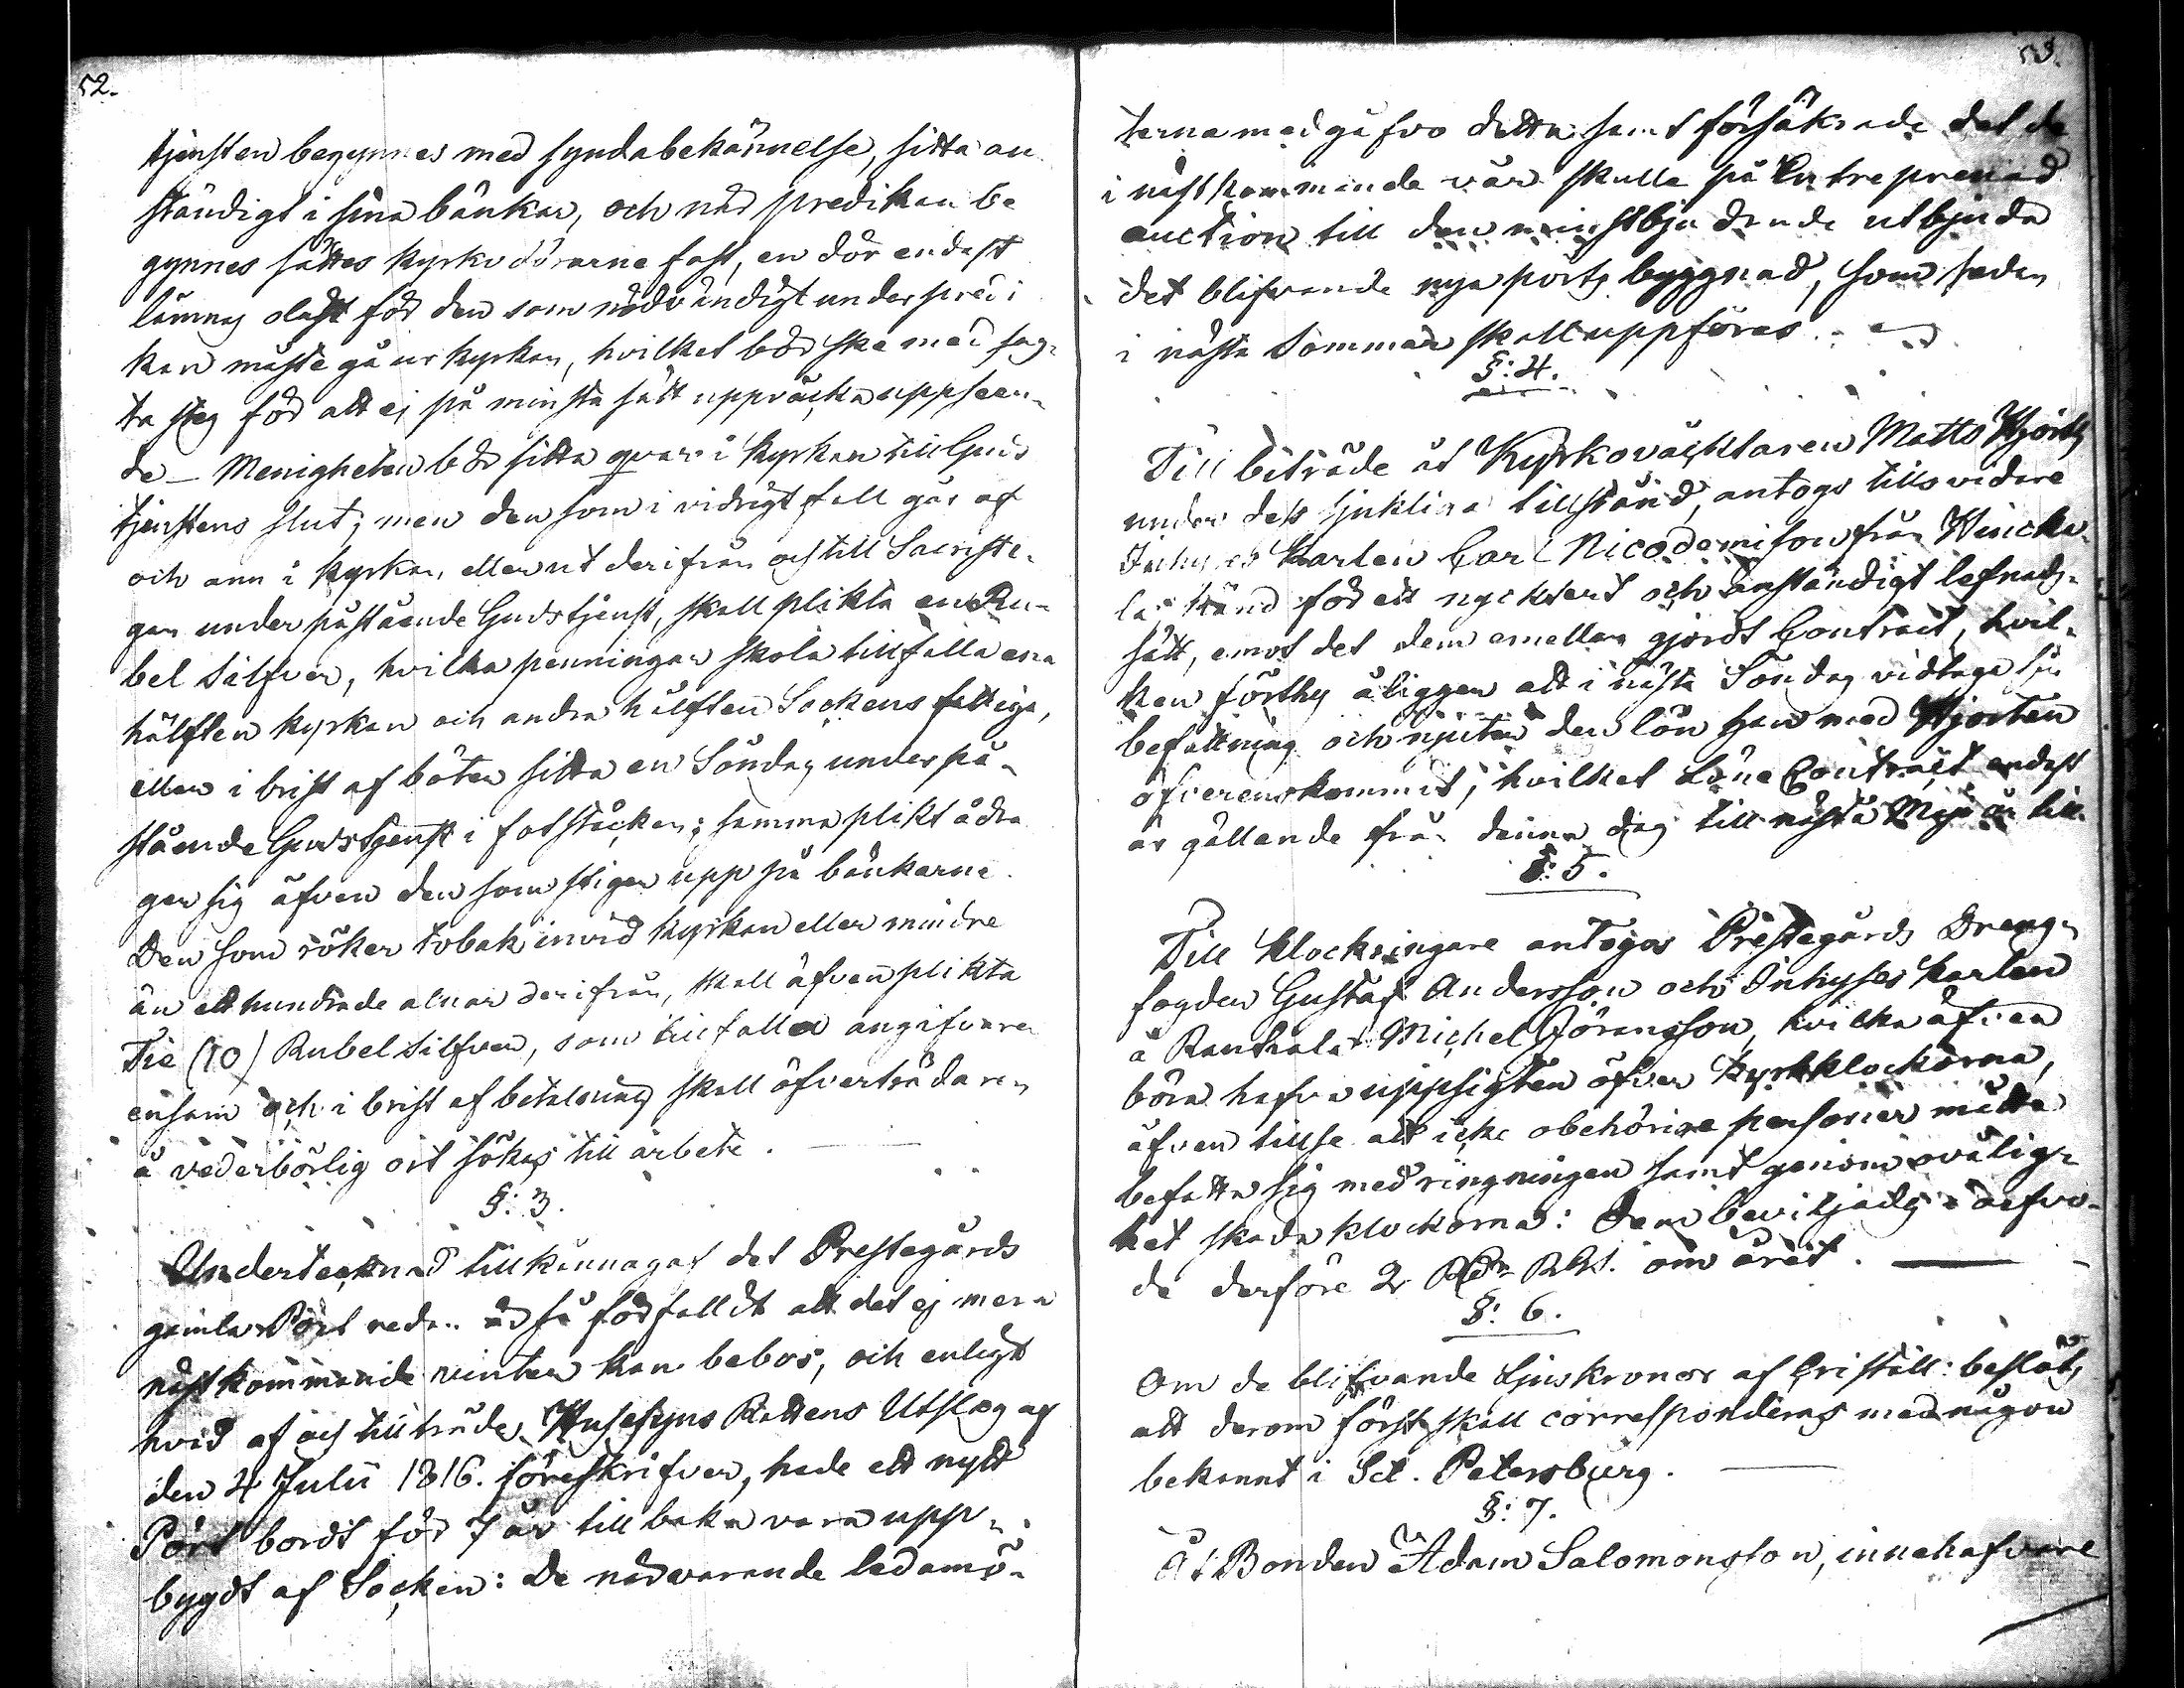 52.
tjensten begynnes med syndabekännelse, sitta an
ständigt i sina bänkar, och når predikan be
gynnes sättes kyrkodörarne fast, en dör endast
lämnas olåst för den som nödvändigt under predi
kan måste gå ur kyrkan, hvilket bör ske med sag-
ta steg för att ej på minsta sätt uppväcka uppseen-
de – Menigheten bör sitta qvar i kyrkan till Guds
tjenstens slut; men den som i vidrigt fall går af
och ann i kyrkan, eller ut derifrån och till Sacriste-
gan under påstående Gudstjenst, skall plikta en Ru-
bel Silfver, hvilka penningar skola tillfalla ena
hälften kyrkan och andra hälften Sockens fattige,
eller i brist af böter sitta en Söndag under på-
stående Gudstjenst i fotstocken; samma plikt ådra
ger sig äfven den som stiger upp på bänkarne.
Den som röker tobak invid kyrkan eller mindre
än ett hundrade alnar derifrån, skall äfven plikta
Tie (10) Rubel Silfver, som tillfaller angifvaren
ensam och i brist af betalning skall öfverträdaren
å vederbörlig ort sökas till arbete.
§: 3.
Undertecknad tillkännagaf det Prestegårds
gamla Pört redan är så förfalldt att det ej mera
nästkommande vinter kan bebos, och enligt
hvad af och tillträdes Husesyns Rättens Utslag af
den 4 Julii 1816. föreskrifver, hade ett nytt
Pört bordt för 7 år tillbaka vara upp-
bygdt af Socken: De närvarande ledamö-
53.
terna medgåfvo detta samt försäkrade det de
i nästkommande vår skulle på Entreprenad
auction till den minstbjudande utbjuda
det blifvande nya pörts byggnad, som sedan
i nästa Sommar skall uppföras.
§: 4.
Till biträde åt Kyrkoväcktaren Matts Hjort,
under dess sjukliga tillstånd, antogs tillsvidare
Inhyses Karlen Carl Nicodemison från
känd för ett nycktert och anständigt lefnads-
sätt, emot det dem emellan gjordt Contract, hvil-
ken förthy åligger att i nästa Söndag vidtaga sin
befattning och njuter den lön han med Hjorten
öfverenskommit, hvilket Löne Contract endast
är gällande från denna dag till nästa Maji år till.
§: 5.
Till klockringare antogos Prestegårds Dreng-
fogden Gustaf Andersson och Inhyses karlen
å Rantala Michel Göransson, hvilka äfven
böra hafva uppsigten öfver kyrkklockorna,
äfven tillse att icke obehörige personer måtta
befatta sig med ringningen samt genom ovålig-
het skada klockorna: Dem beviljades i arfvo-
de derföre 2 Rd. om året.
§: 6.
Om de blifvande Ljuskronor af Cristall: beslöts
att derom först skall corresponderas med någon
bekannt i Sct. Petersburg.
§: 7.
Åt Bonden Adam Salomonsson, innehafvare